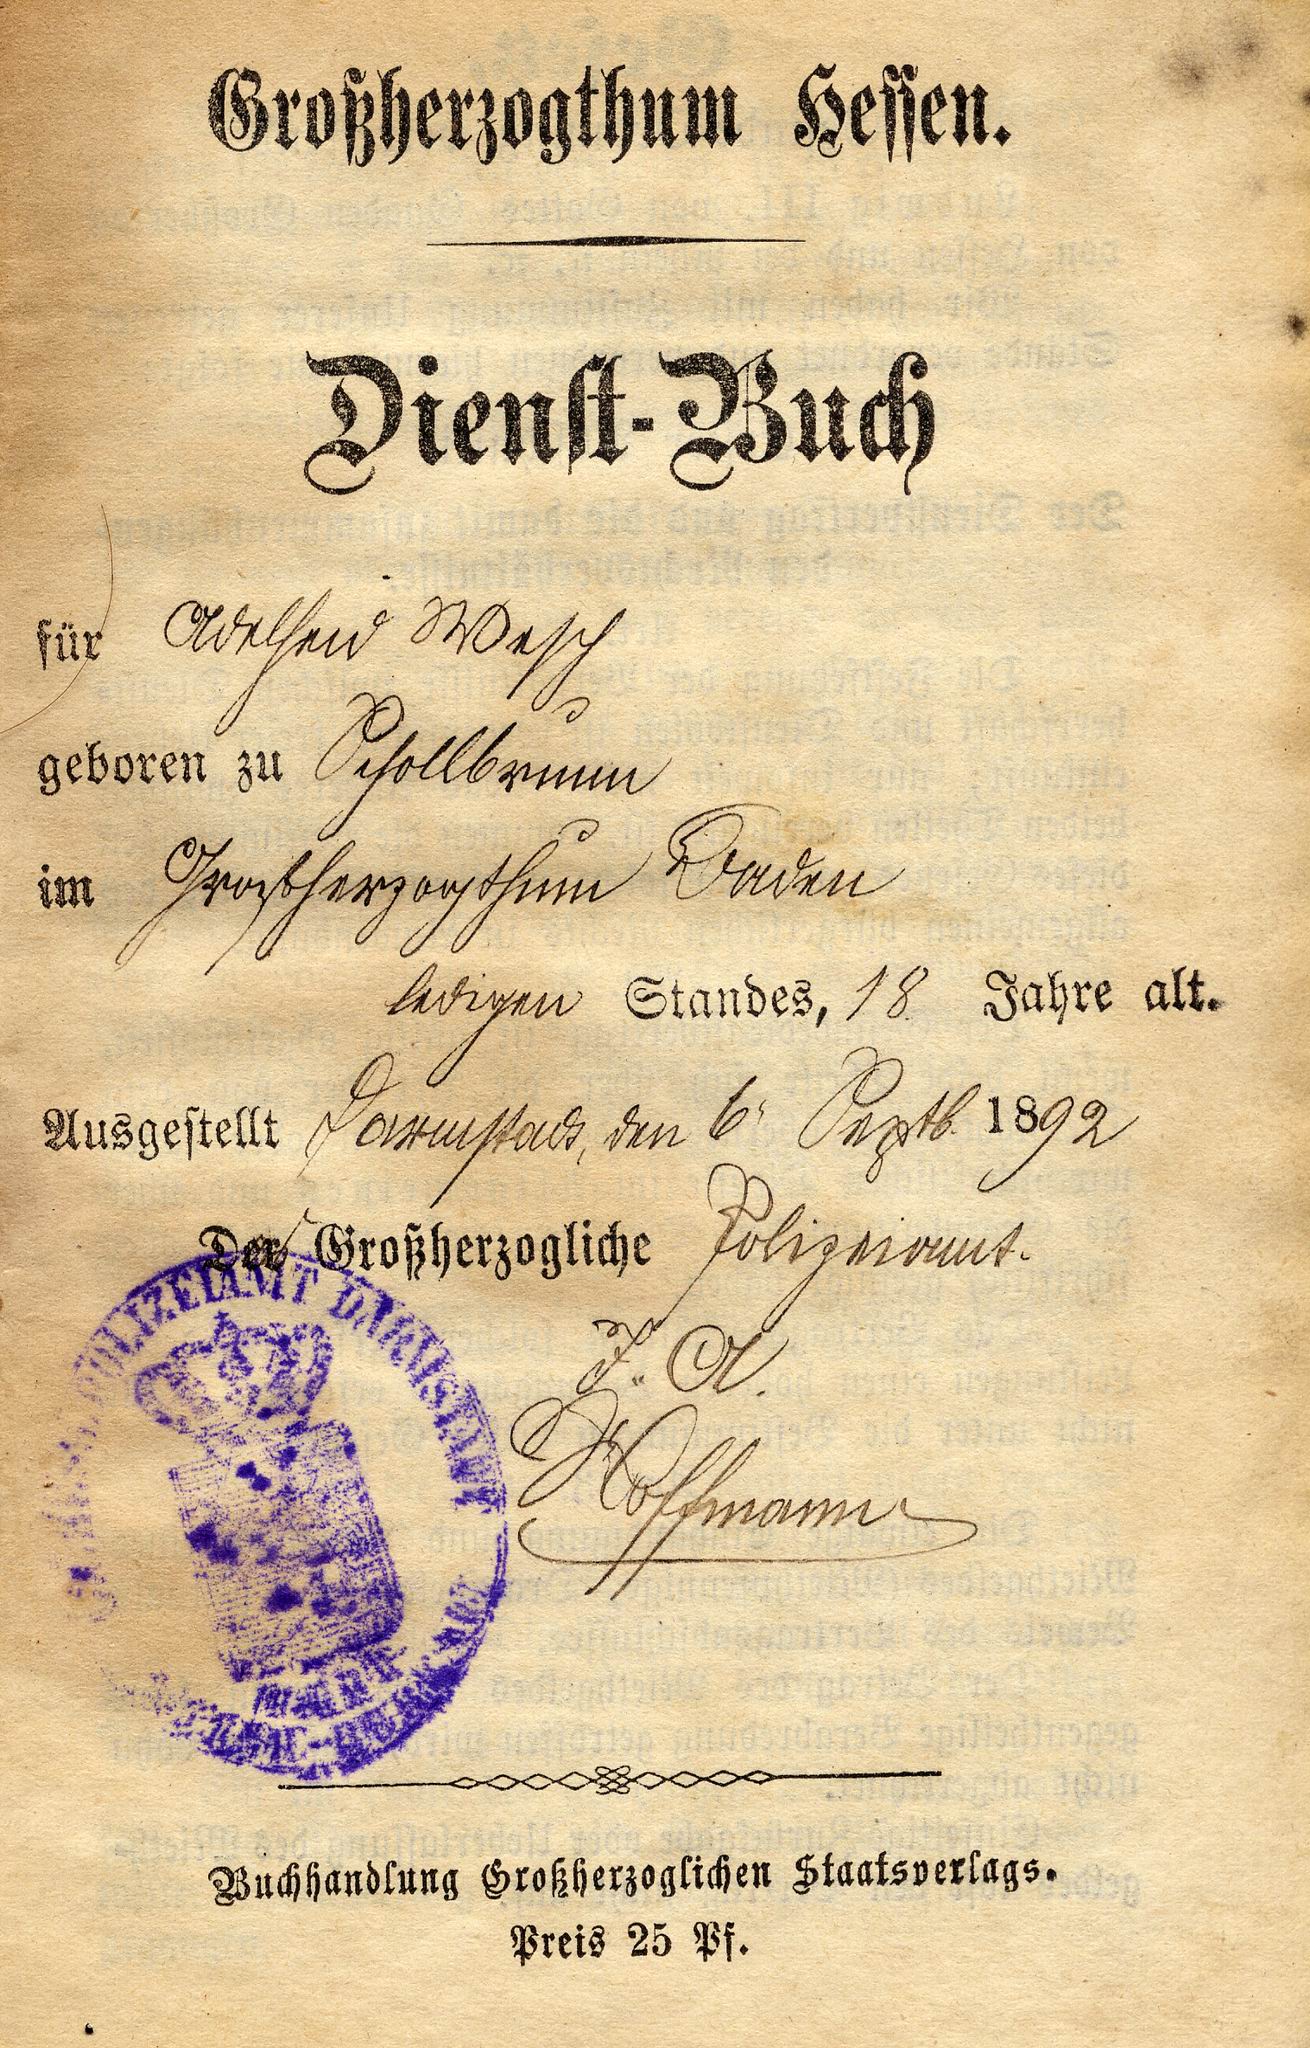 Großherzogthum Hessen.
Dienst-Buch
für Adelheid Wesch
geboren zu Schollbrunn
im Großherzogthum Baden
ledigen Standes, 18 Jahre alt.
Ausgestellt Darmstadt, den 6. Septb. 1892
Der Großherzogliche Polizeiamt.
J. A.
Hoffmann
POLIZEIAMT DARMSTADT
Buchhandlung Großherzoglichen Staatsverlags.
Preis 25 Pf.